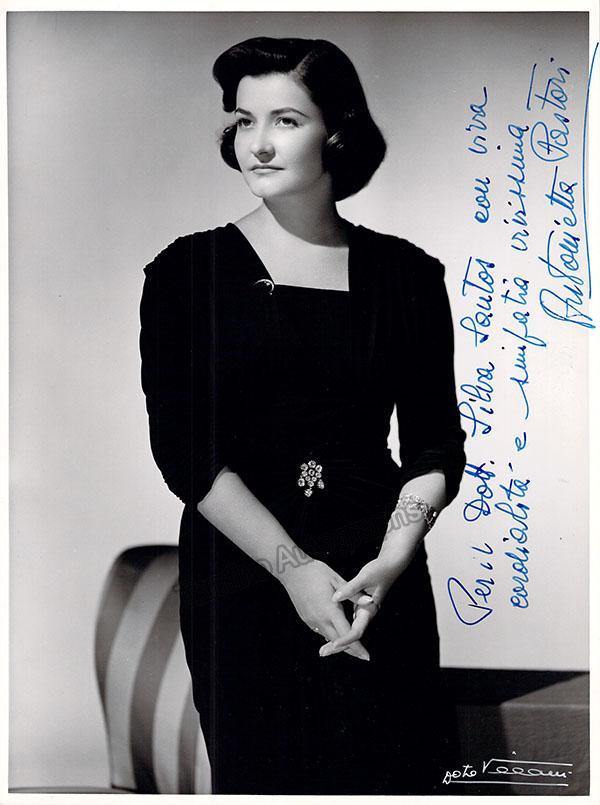 Per il Dott. Silva Santos con viva
cordialità e simpatia vivissima
Antonietta Pastori
Foto Villani